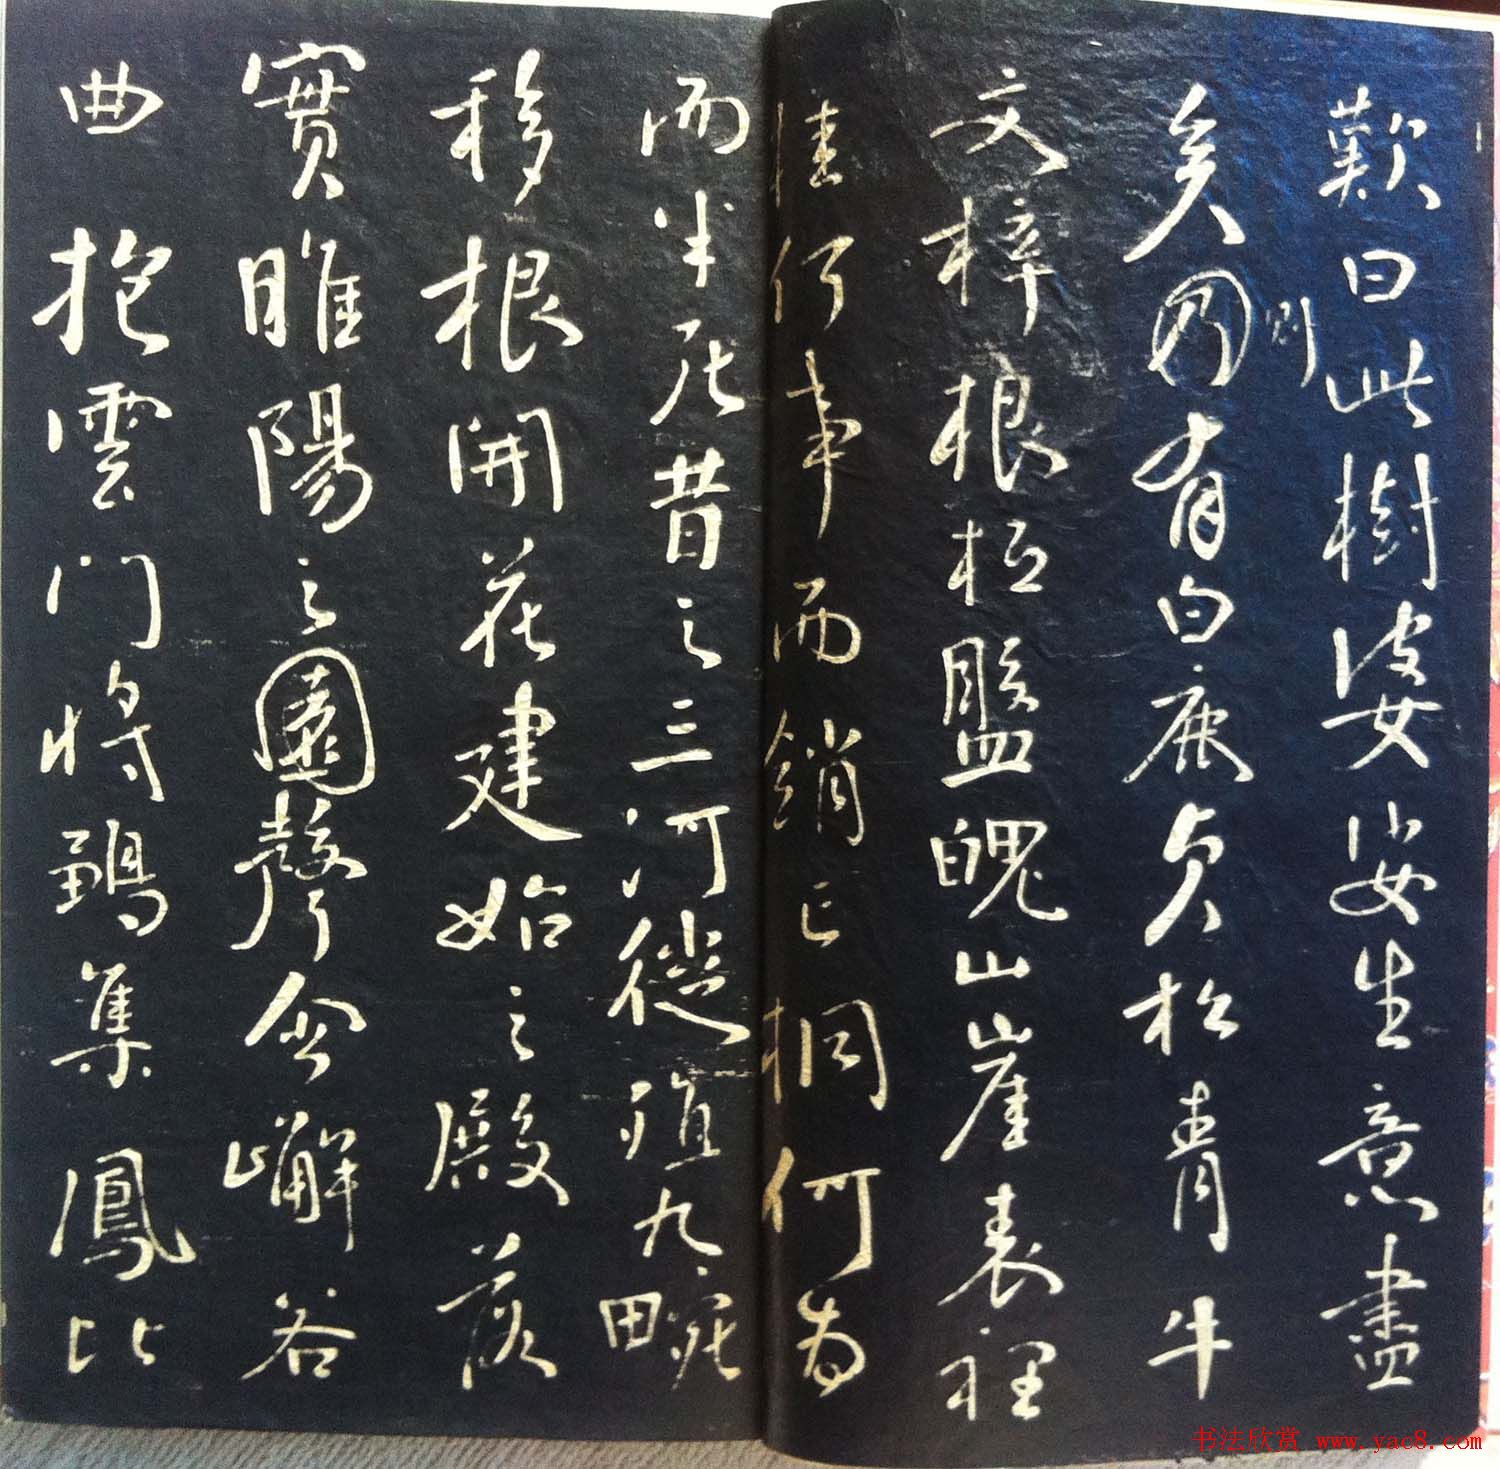 歎曰此樹婆娑生意盡
矣有白鹿貞松青牛
則
文梓根柢盤魄山崖表裡
桂何事而銷亡桐何為
而半死昔之三河徙殖九畹
移根開花建始之殿落
實睢陽之園聲含嶰谷
曲抱雲門將鶵集鳳比
书法欣赏 www.yac8.com